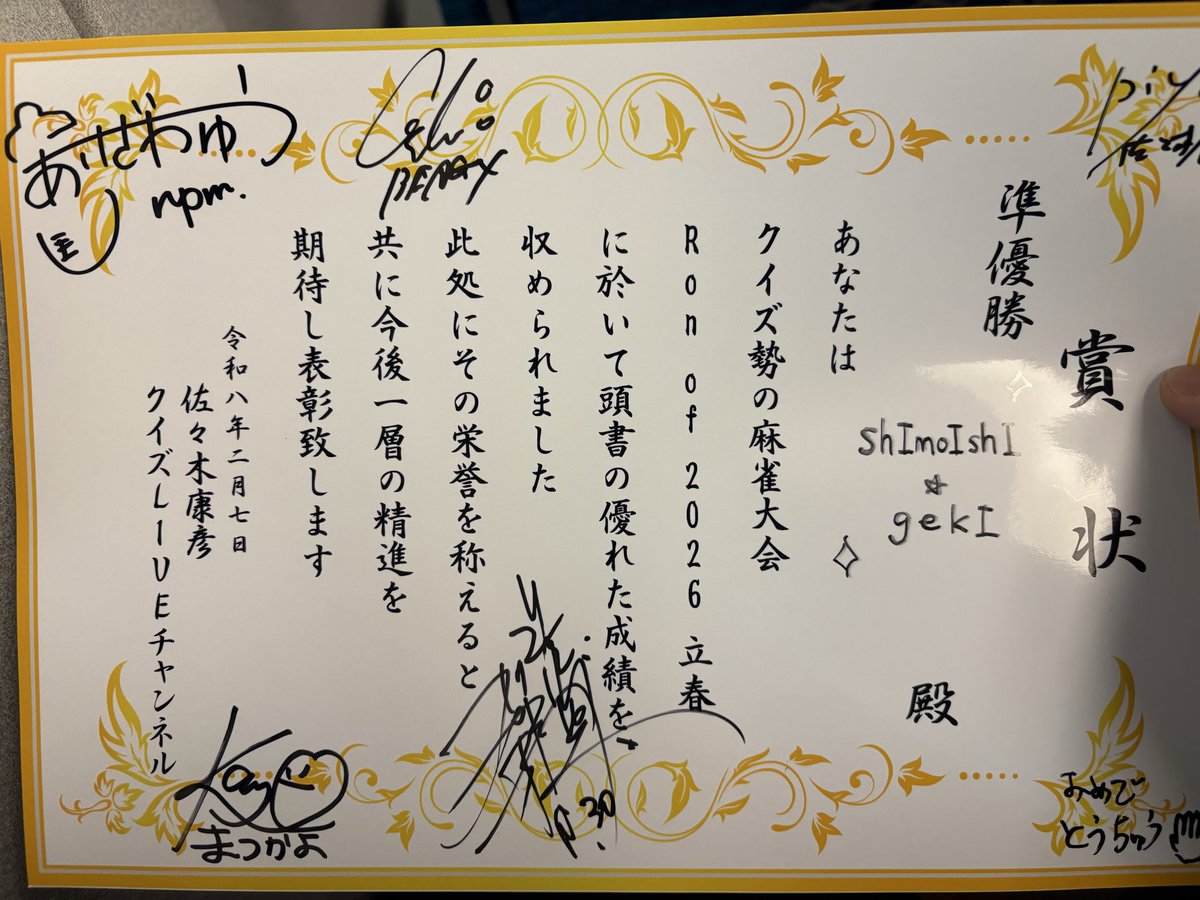 賞状
準優勝
shImoIshI
☆
gekI
殿
あなたは
クイズ勢の麻雀大会
Ron of 2026 立春
に於いて頭書の優れた成績を
収められました
此処にその栄誉を称えると
共に今後一層の精進を
期待し表彰致します
令和八年二月七日
佐々木康彦
クイズLIVEチャンネル
あいざわゆう
npm.
まつかよ
おめで
とうちゅう